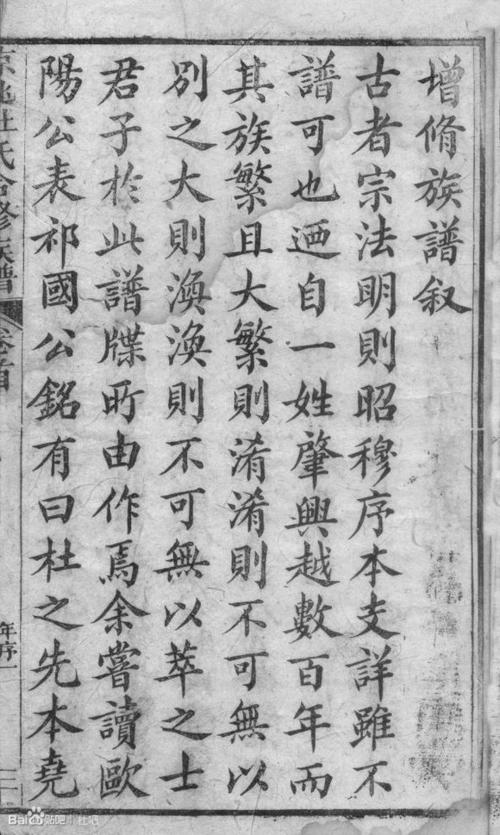 增脩族譜叙
古者宗法明則昭穆序本支詳雖不
譜可也廼自一姓肇興越數百年而
其族繁且大繁則淆淆則不可無以
别之大則渙渙則不可無以萃之士
君子於此譜牒所由作焉余嘗讀歐
陽公表祁國公銘有曰杜之先本堯
京兆杜氏合修族譜
卷首
年序一
Bai 贴吧